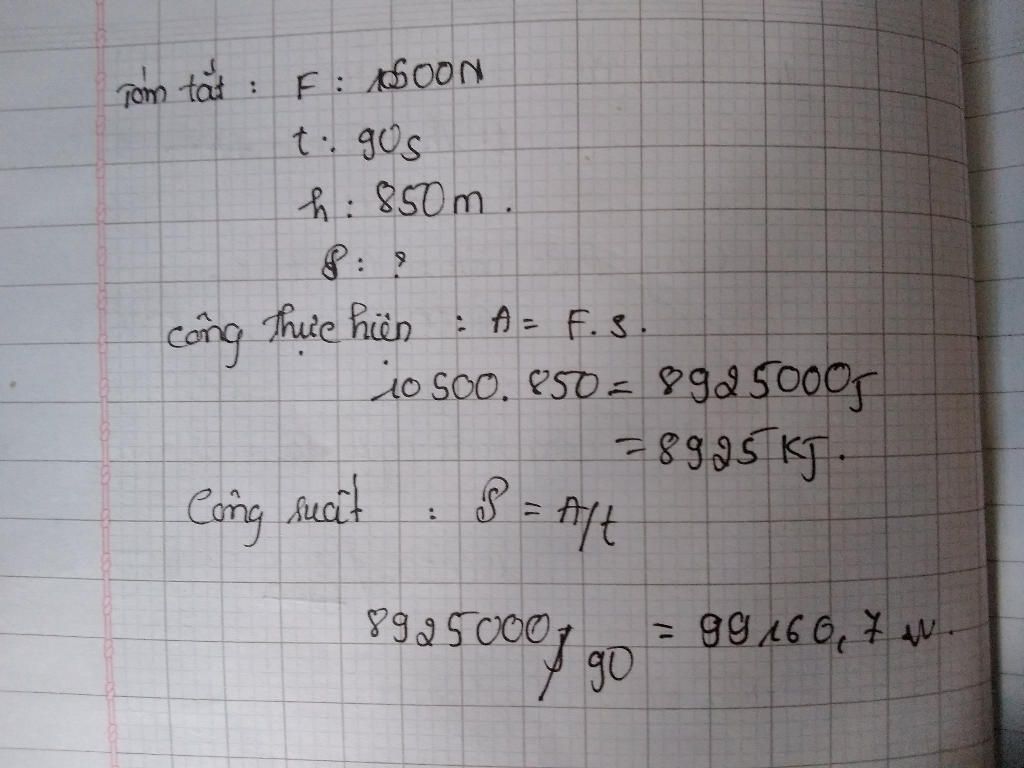 Tóm tắt : F : 10500N
t : 90s
h : 850m .
P : ?
Công thực hiện : A = F . s .
10500 . 850 = 8925000J
= 8925 KJ .
Công suất : P = A/t
8925000 / 90 = 99166,7 w .